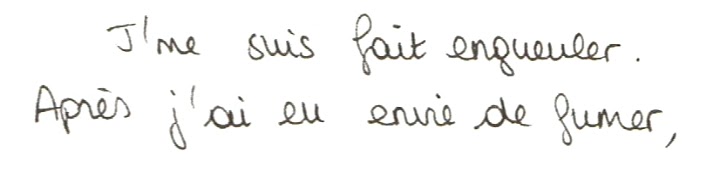 J'me suis fait engueuler.
Après j'ai eu envie de fumer,